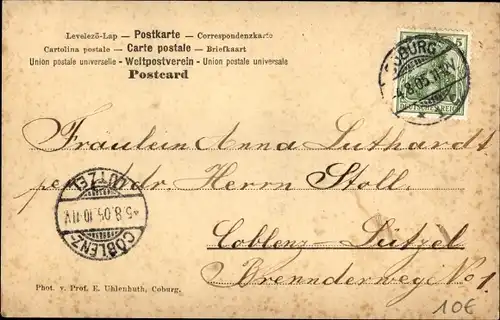 Levelező-Lap — Postkarte — Correspondenzkarte
Cartolina postale — Carte postale — Briefkaart
Union postale universelle - Weltpostverein - Union postale universale
Postcard
COBURG
4.8.05.11-12V
DEUTSCHES REICH
Fräulein Anna Luthardt
per Adr. Herrn Stoll.
Coblenz-Lützel
Brennderweg No 1.
LÜTZEL
5.8.05.10-11V.
COBLENZ-
Phot. v. Prof. E. Uhlenhuth, Coburg.
10€